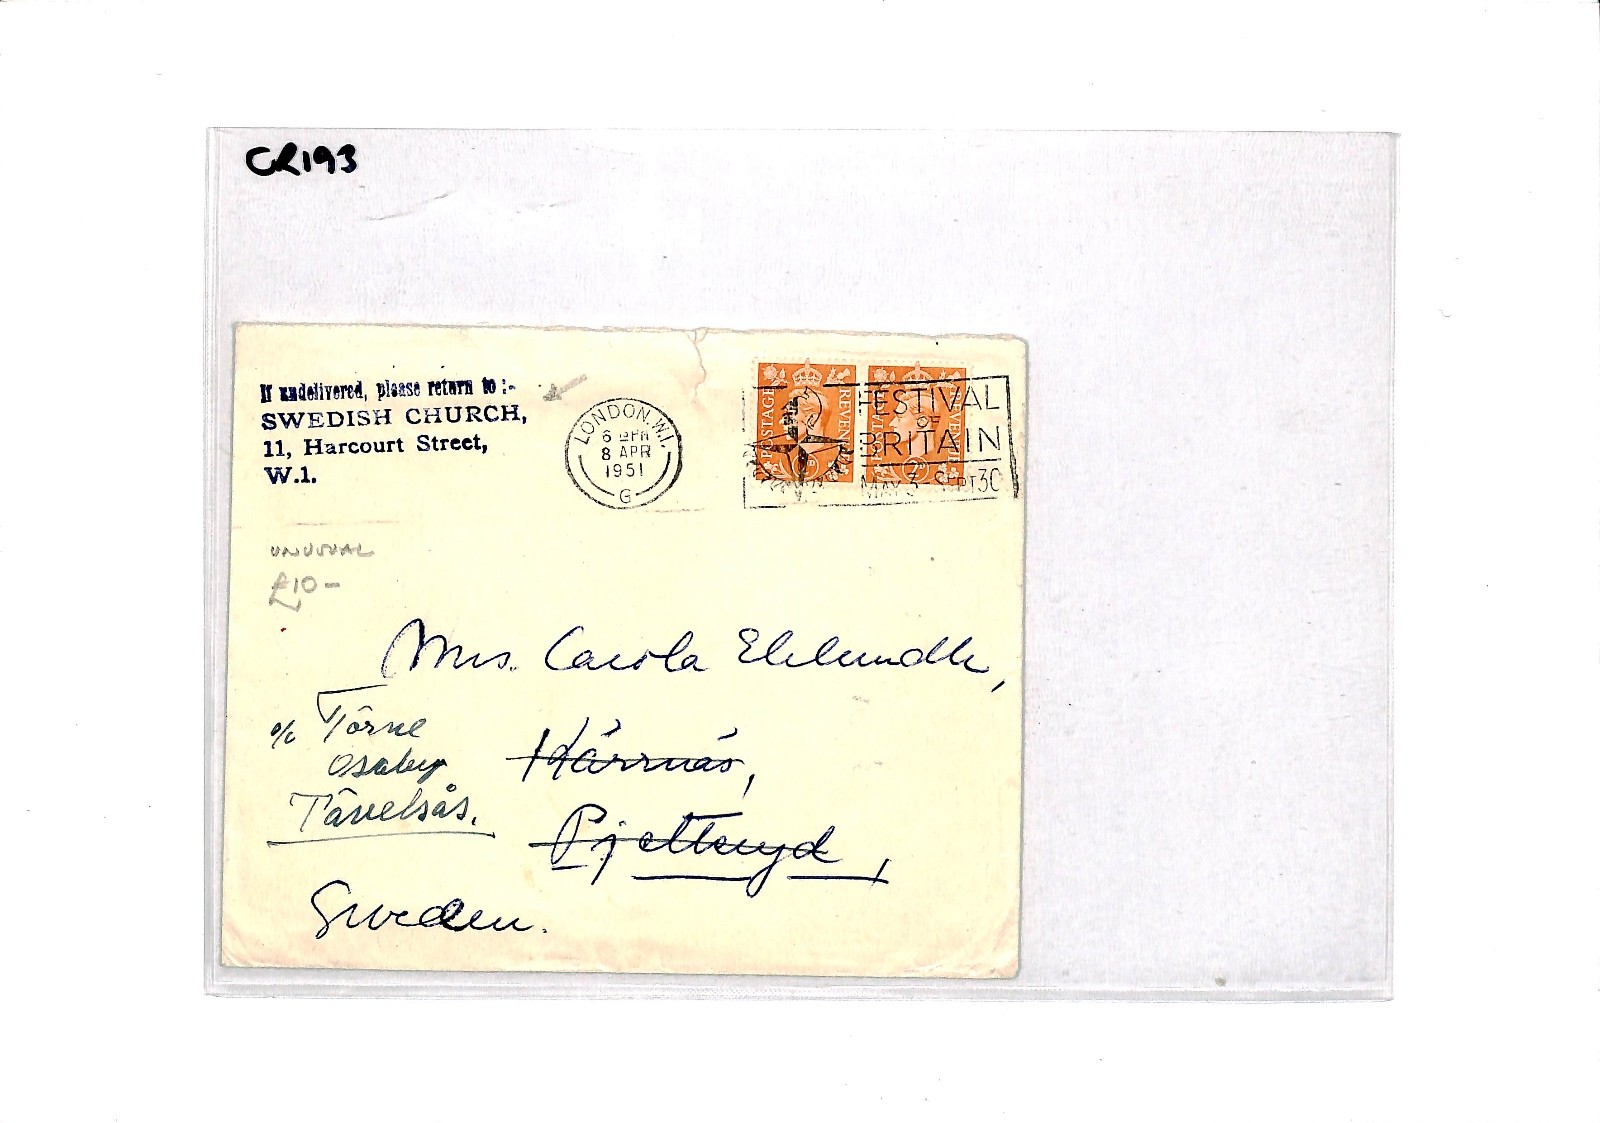 CR193
If undelivered, please return to :-
SWEDISH CHURCH,
11, Harcourt Street,
W.1.
LONDON. W.1.
6 PM
8 APR
1951
G
POSTAGE REVENUE
POSTAGE REVENUE
FESTIVAL
OF
BRITAIN
MAY 3 - SEPT 30
UNUSUAL
£10-
Mrs. Carola Eklundh,
c/o Törne
Osaby
Tävelsås.
Kärrnäs,
Pjetteryd,
Sweden.